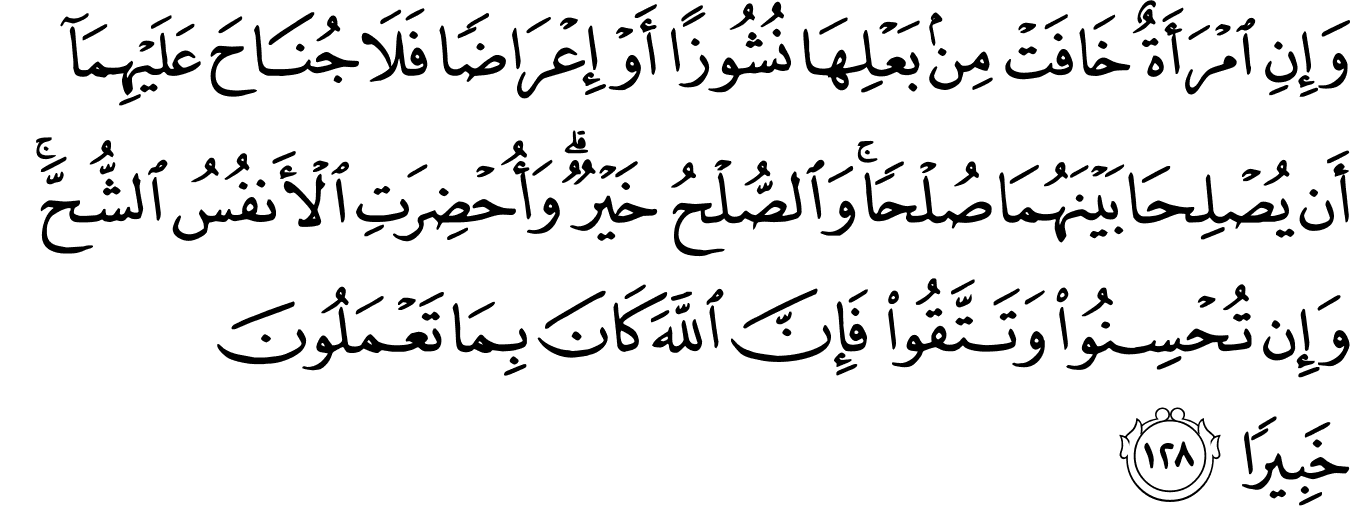 وَإِنِ ٱمْرَأَةٌ خَافَتْ مِنۢ بَعْلِهَا نُشُوزًا أَوْ إِعْرَاضًا فَلَا جُنَاحَ عَلَيْهِمَآ
أَن يُصْلِحَا بَيْنَهُمَا صُلْحًا ۚ وَٱلصُّلْحُ خَيْرٌ ۗ وَأُحْضِرَتِ ٱلْأَنفُسُ ٱلشُّحَّ ۚ
وَإِن تُحْسِنُوا۟ وَتَتَّقُوا۟ فَإِنَّ ٱللَّهَ كَانَ بِمَا تَعْمَلُونَ
خَبِيرًا ١٢٨